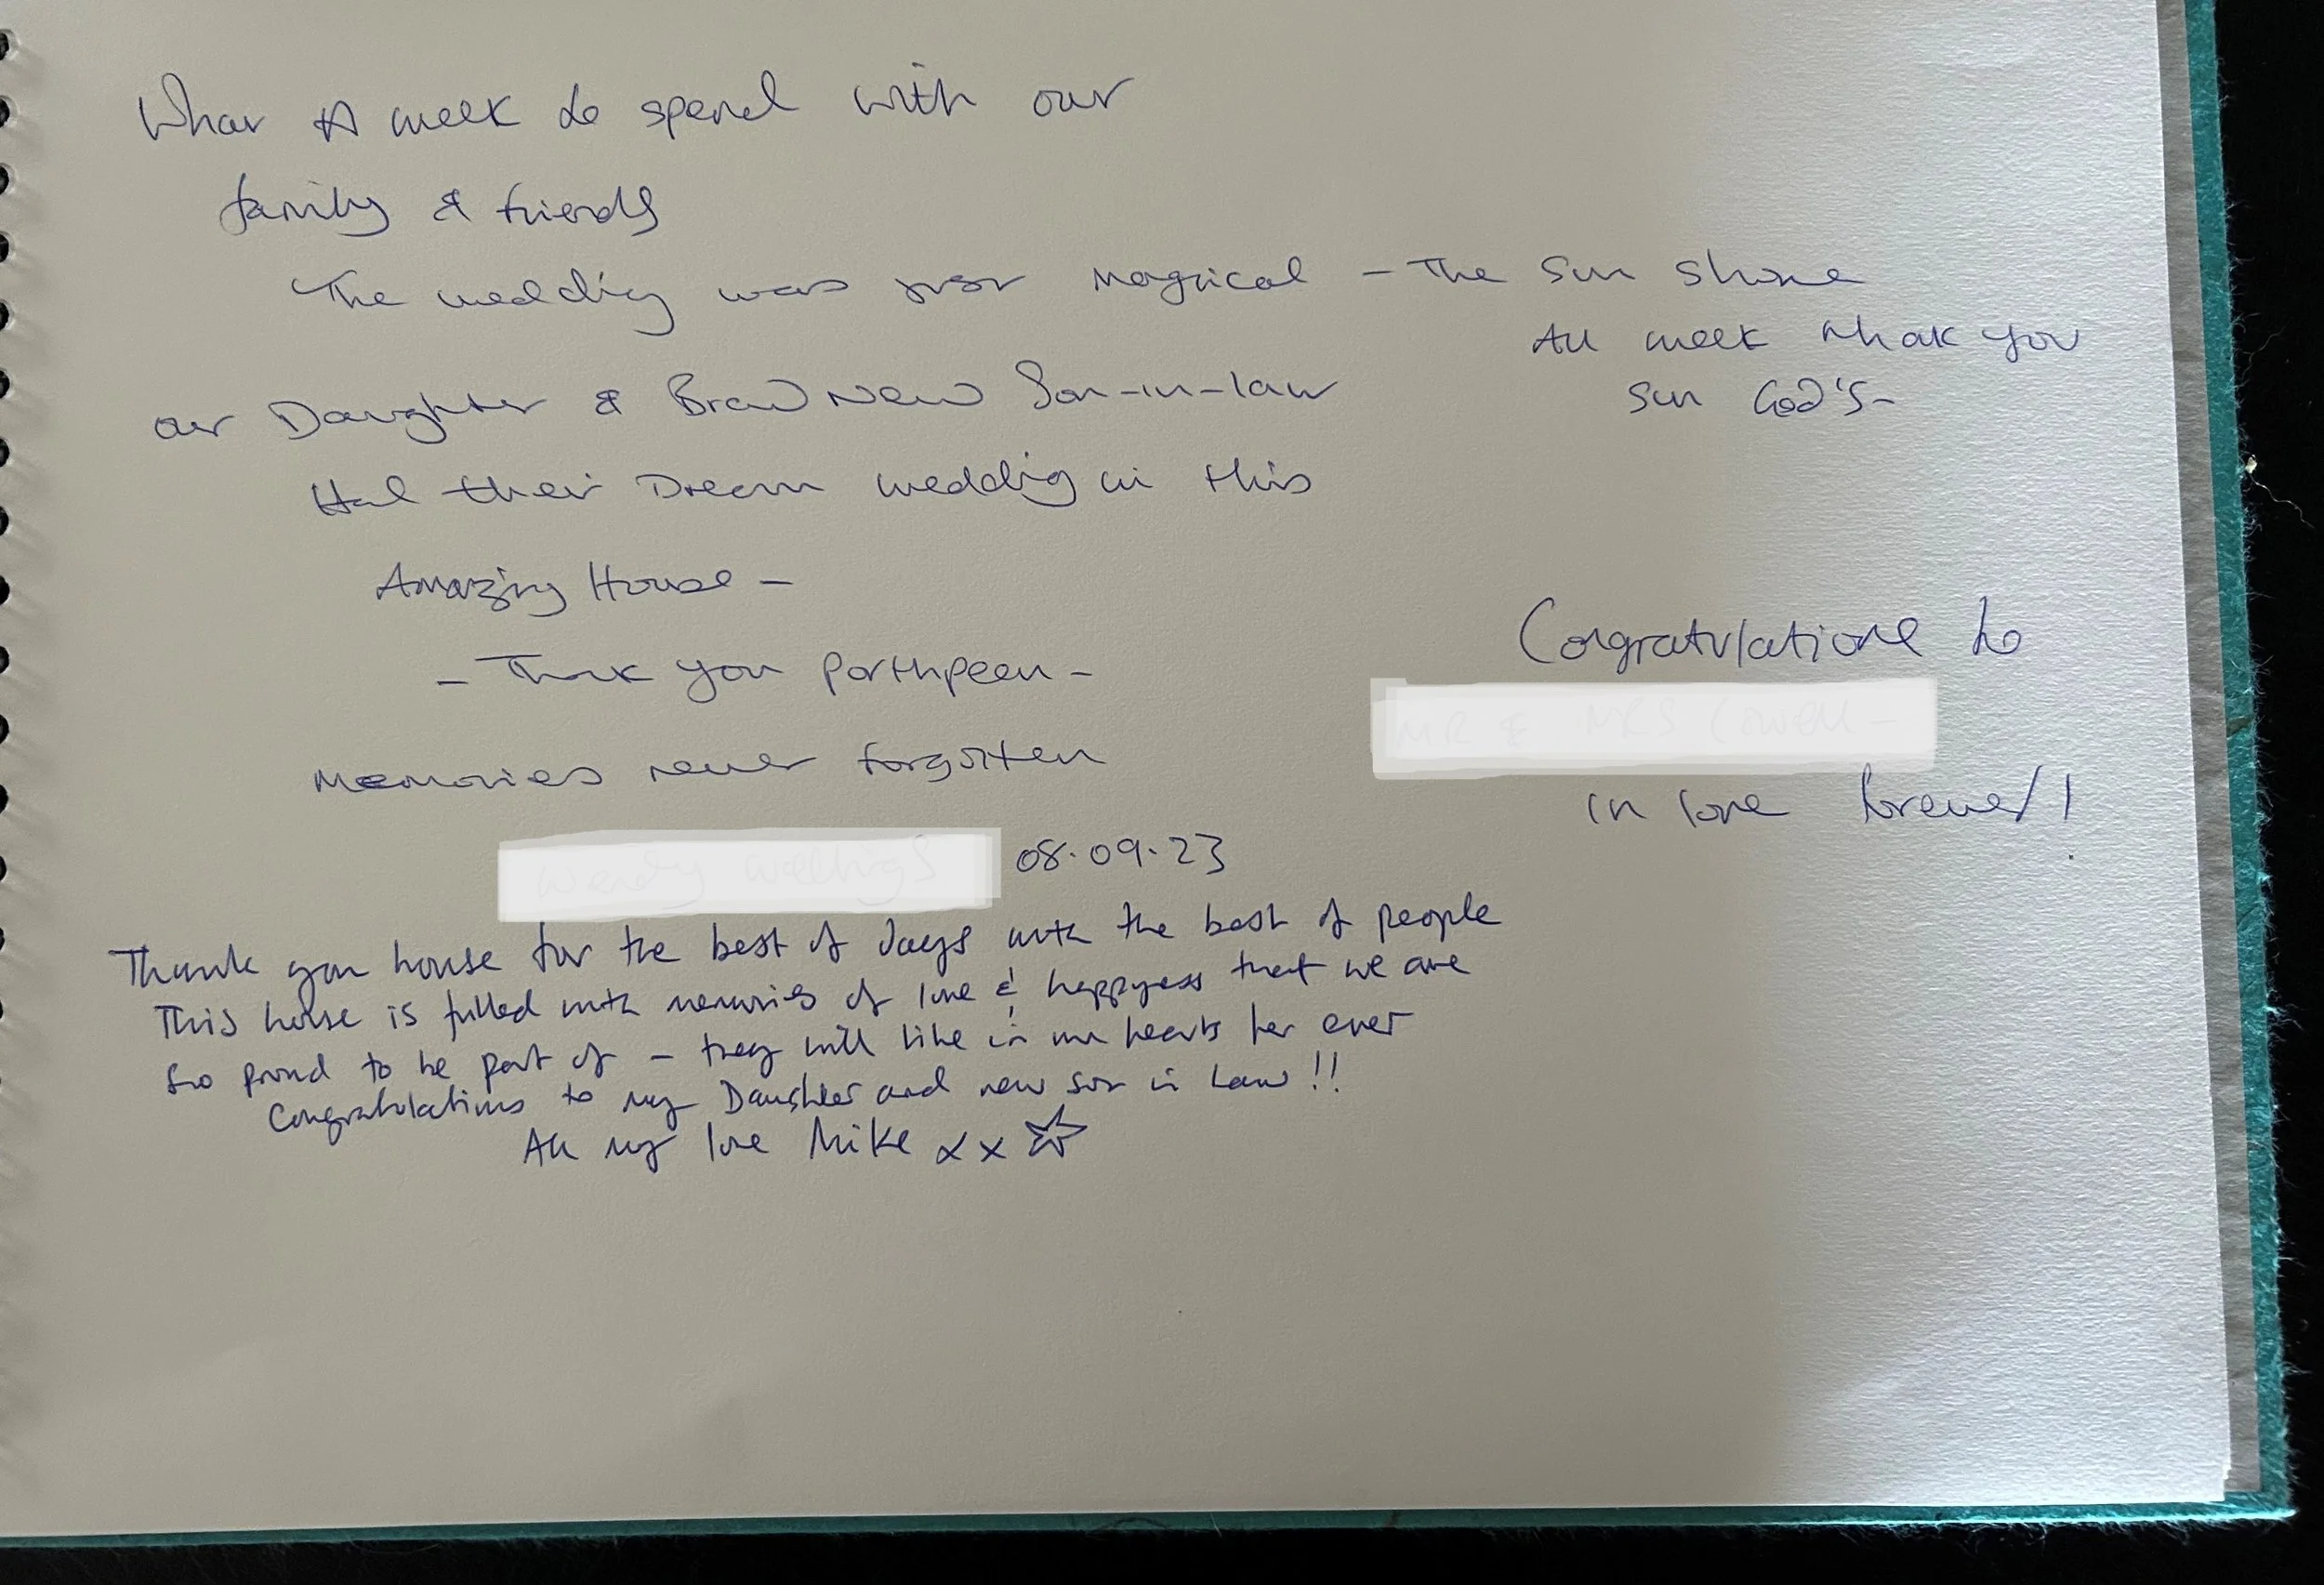 What A week to spend with our
family & friends
The wedding was just magical - The sun shone
All week thank you
sun God's -
our Daughter & Brand New Son-in-law
Had their Dream wedding in this
Amazing House -
- Thank you Porthpean -
Memories never forgotten
Congratulations to
in love forever!!
08.09.23
Thank you house for the best of days with the best of people
This house is filled with memories of love & happyness that we are
so proud to be part of - they will live in our hearts for ever
Congratulations to my Daughter and new son in Law!!
All my love Mike xx